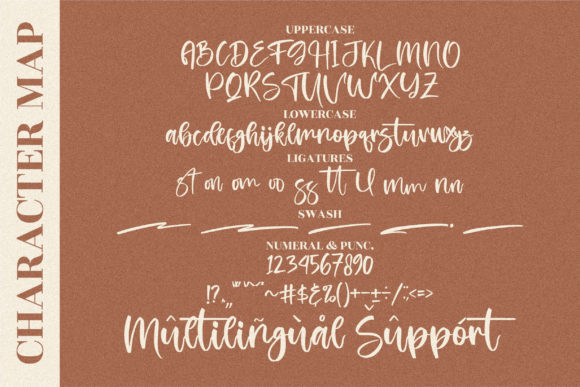 CHARACTER MAP
UPPERCASE
ABCDEFGHIJKLMNO
PQRSTUVWXYZ
LOWERCASE
abcdefghijklmnopqrstuvwxyz
LIGATURES
st on om oo ss tt ll mm nn
SWASH
NUMERAL & PUNC.
1234567890
!?.,,"''~~~#$£%()+-±÷/:;<=>
Mûltiliñgùål Šûppórt